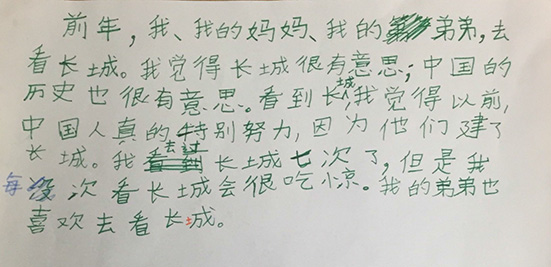 前年，我、我的妈妈、我的弟弟，去
看长城。我觉得长城很有意思；中国的
历史也很有意思。看到长城我觉得以前，
中国人真的特别努力，因为他们建了
长城。我去过长城七次了，但是我
每次看长城会很吃惊。我的弟弟也
喜欢去看长城。